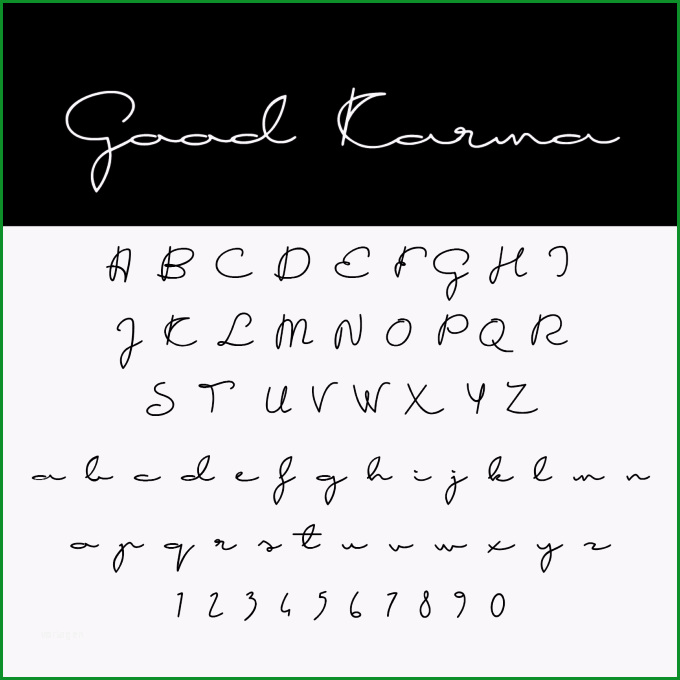 Good Karma
A B C D E F G H I
J K L M N O P Q R
S T U V W X Y Z
a b c d e f g h i j k l m n
o p q r s t u v w x y z
1 2 3 4 5 6 7 8 9 0